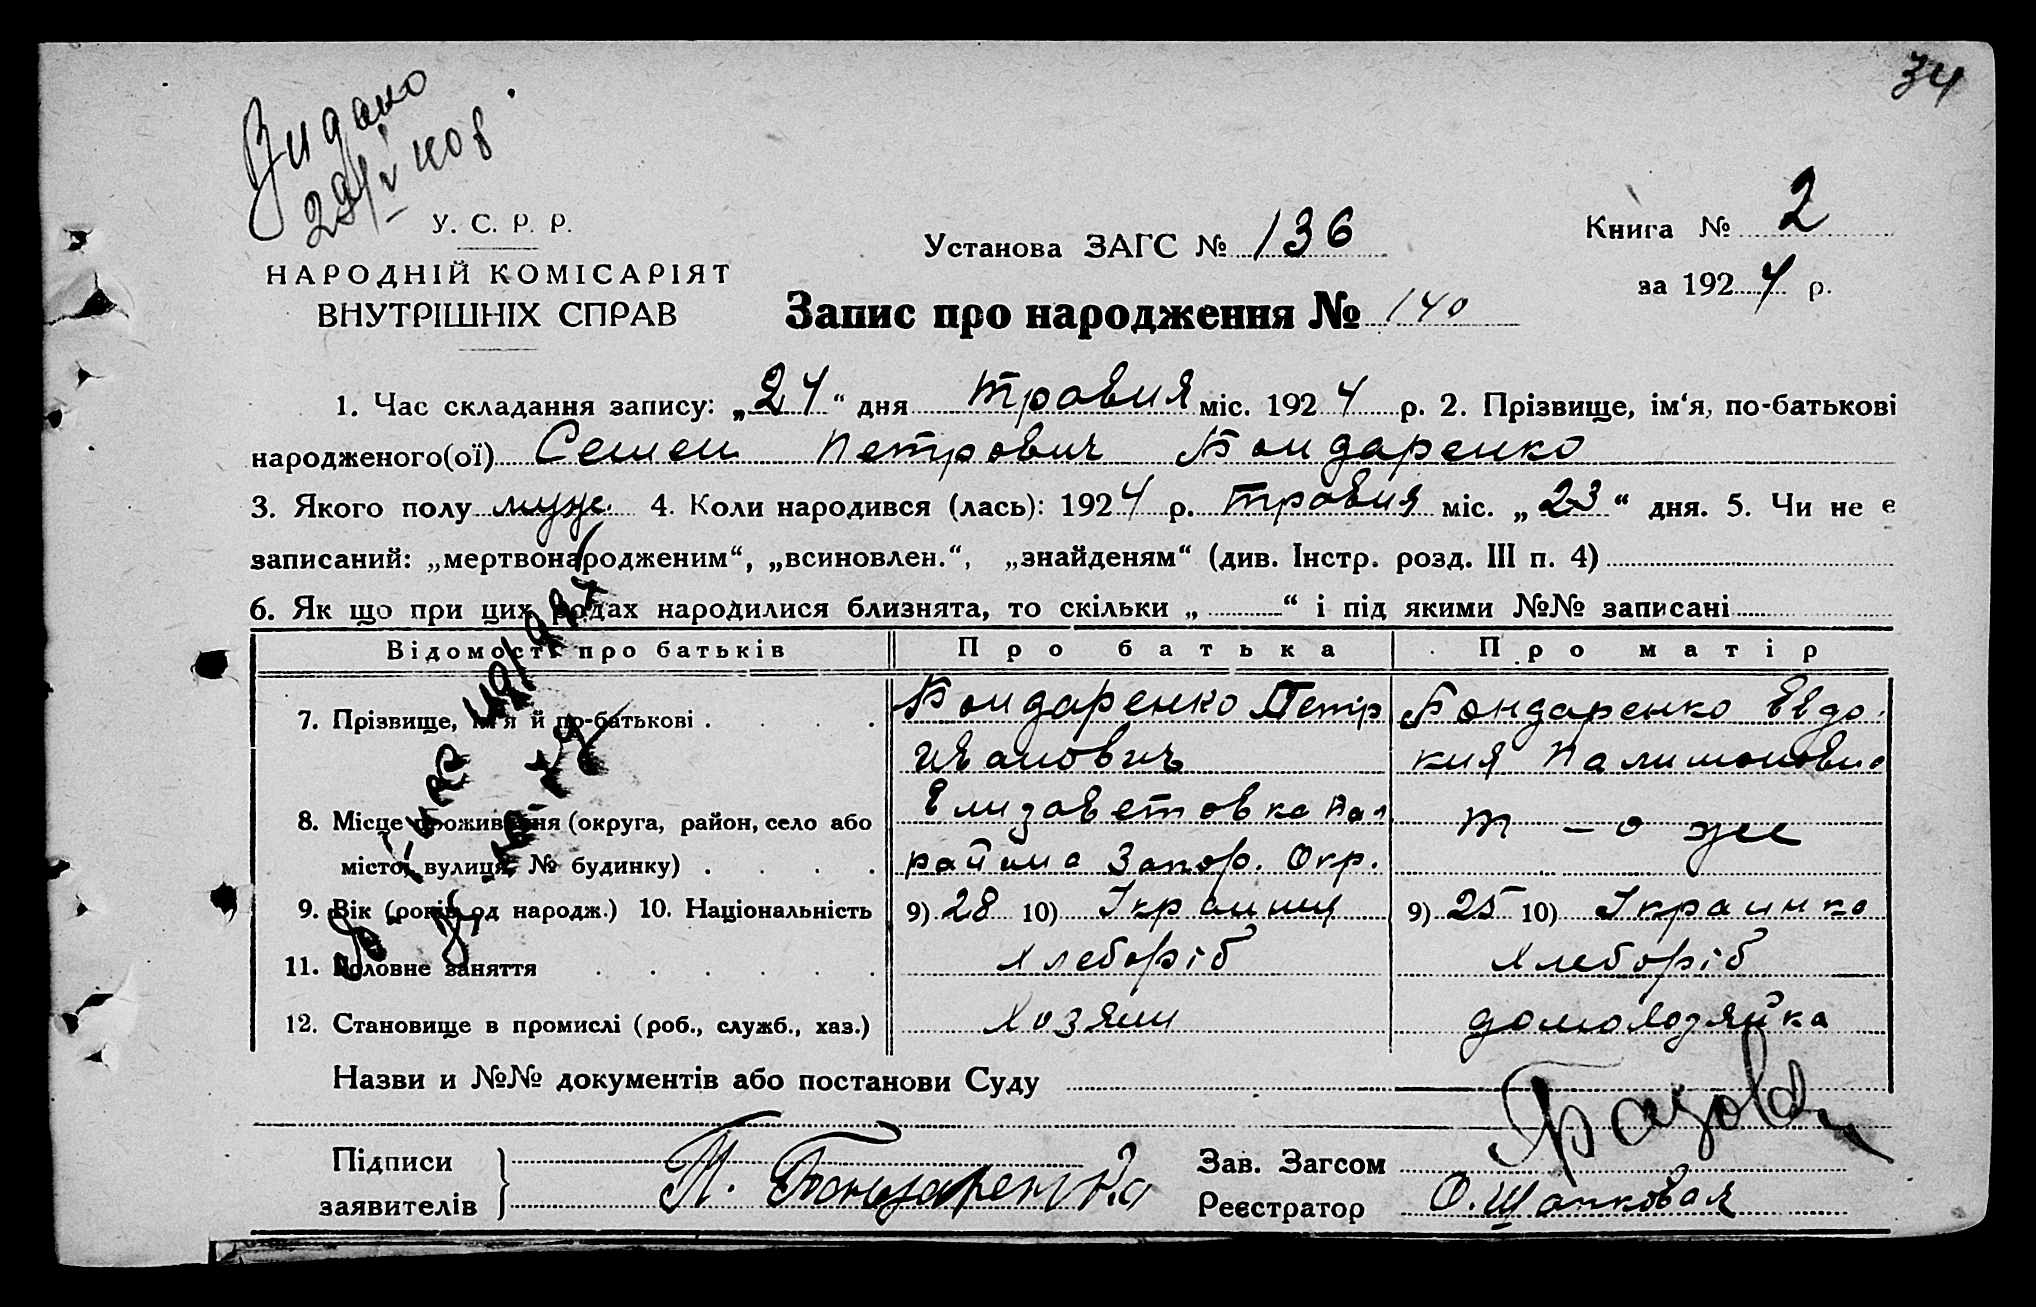 34
Видано
У. С. Р. Р.
НАРОДНІЙ КОМІСАРІЯТ
ВНУТРІШНІХ СПРАВ
Установа ЗАГС № 136
Книга № 2
за 1924 р.
Запис про народження № 140
1. Час складання запису: „24“ дня травня міс. 1924 р. 2. Прізвище, ім‘я, по-батькові
народженого(ої) Семен Петрович Бондаренко
3. Якого полу муж. 4. Коли народився (лась): 1924 р. травня міс. „23“ дня. 5. Чи не є
записаний: „мертвонародженим“, „всиновлен.“, „знайденям“ (див. Інстр. розд. III п. 4)
6. Як що при цих родах народилися близнята, то скільки „ “ і під якими №№ записані
Відомості про батьків Про батька Про матір
7. Прізвище, ім‘я й по-батькові . . . . Бондаренко Петр Бондаренко Евдо
Иванович кия
8. Місце проживання (округа, район, село або Елизаветовка т-о же
місто, вулиця, № будинку) . . . . района Запор. Окр.
9. Вік (років од народж.) 10. Національність 9) 28 10) Украинец 9) 25 10) Украинка
11. Головне заняття . . . . . . Хлеборіб Хлеборіб
12. Становище в промислі (роб., служб., хаз.) Хозяин домохозяйка
Назви и №№ документів або постанови Суду
Підписи
заявителів П. Бондаренко
Зав. Загсом
Реєстратор О. Шапковая